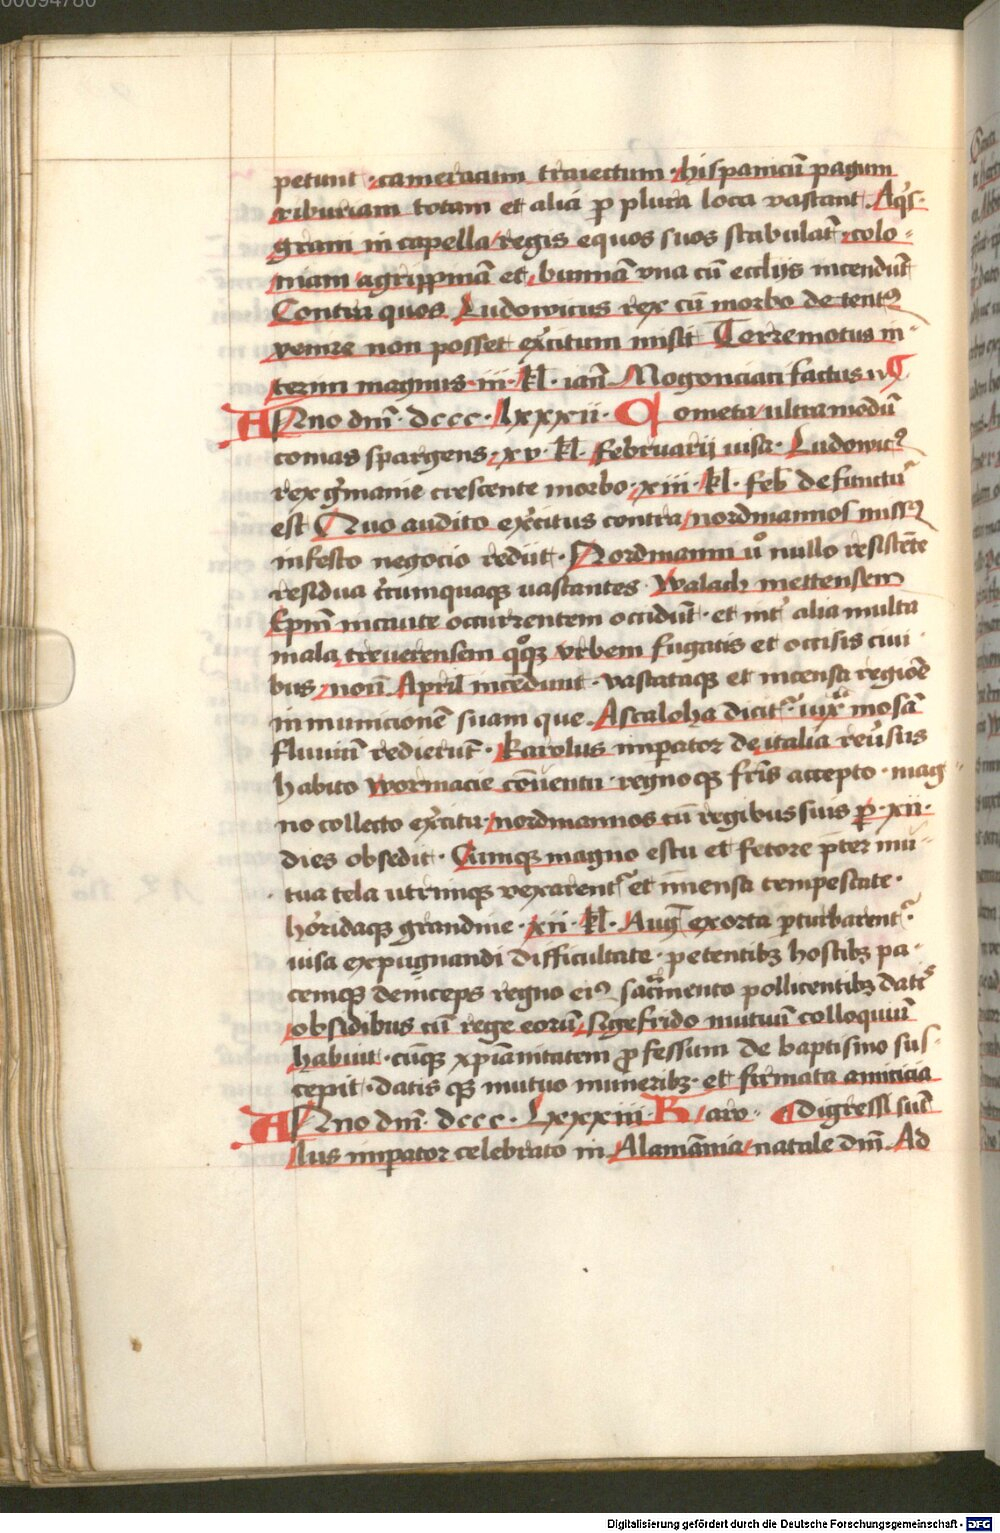 00094780
petunt · cameracum traiectum · hispanicū pagum
riburiam totam et alia p̄ plura loca vastant. Aq̄s·
grani in capella regis equos suos stabulat̄ · colo-
niam agrippinā et bunnā vna cū eccliis incendūt
Contra quos Ludowicus rex cū morbo detentꝰ
venire non posset ex̄citum misit Terremotus in-
terim magnus · iii · kl · ian̄ Mogonciaci factus
Anno dn̄i · dccc · lxxxii · Cometa ultra modū
comas spargens · xv · kl · februarij uisa · Ludowicꝰ
rex ḡmanie crescente morbo · xiii · kl · feb defunctū
est Quo audito ex̄citus contra nordmannos missꝰ
infecto negocio rediit · Nordmanni ů nullo resistēte
residua c̄rumquaqꝫ uastantes · Walach mettensem
Ep̄m incaute occurrentem occidūt · et int̄ alia multa
mala treuerensem qͦqꝫ vrbem fugatis et occisis ciui
bus, non̄ April incēdunt · vastataqꝫ et incensa regiōe
in municionē suam que Ascaloha dicit̄ · iuxͣ mosā
fluuiū redierūt · Karolus imperator de italia reūsus
habito wormacie cōuentu · regnoqꝫ fr̄is accepto · mag-
no collecto ex̄citu · nordmannos cū regibus suis p̄ · xii ·
dies obsedit · Cumqꝫ magno estu et fetore p̄ter mu-
tua tela utrimqꝫ vexarent̄ et imensa tempestate ·
horridaqꝫ grandine · xii · kl · Aug exorta p̄turbarent̄ ·
uisa expugnandi difficultate · petentibꝫ hostibꝫ pa-
cemqꝫ deinceps regno eiꝰ sacͣmento pollicentibꝫ datꝭ
obsidibus cū rege eorū, sigefrido mutuū colloquiū
habuit · cūqꝫ xp̄ianitatem ꝓfessum de baptismo sus-
cepit · datisqꝫ mutuo muneribꝫ · et firmata amicicia
Anno dn̄i · dccc · Lxxxiii · Karo- digressi sūt
lus imperator celebrato in Alamānia natale dn̄i. Ad
Digitalisierung gefördert durch die Deutsche Forschungsgemeinschaft - DFG